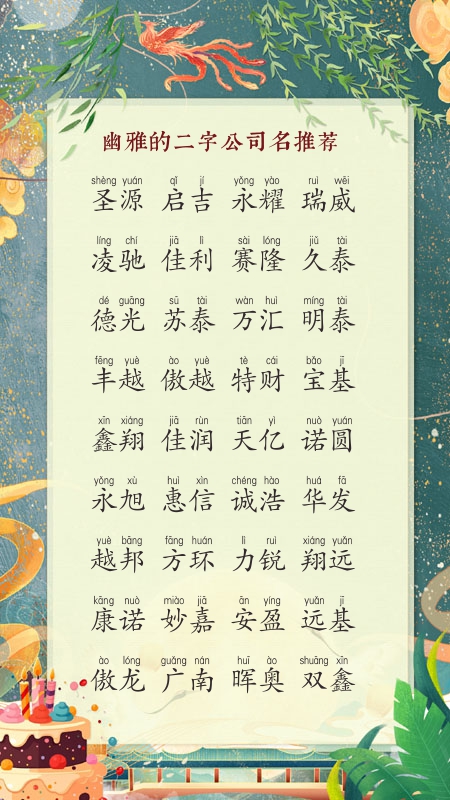 幽雅的二字公司名推荐
shèng yuán qǐ jí yǒng yào ruì wēi
圣源 启吉 永耀 瑞威
líng chí jiā lì sài lóng jiǔ tài
凌驰 佳利 赛隆 久泰
dé guāng sū tài wàn huì míng tài
德光 苏泰 万汇 明泰
fēng yuè ào yuè tè cái bǎo jī
丰越 傲越 特财 宝基
xīn xiáng jiā rùn tiān yì nuò yuán
鑫翔 佳润 天亿 诺圆
yǒng xù huì xìn chéng hào huá fā
永旭 惠信 诚浩 华发
yuè bāng fāng huán lì ruì xiáng yuǎn
越邦 方环 力锐 翔远
kāng nuò miào jiā ān yíng yuǎn jī
康诺 妙嘉 安盈 远基
ào lóng guǎng nán huī ào shuāng xīn
傲龙 广南 晖奥 双鑫